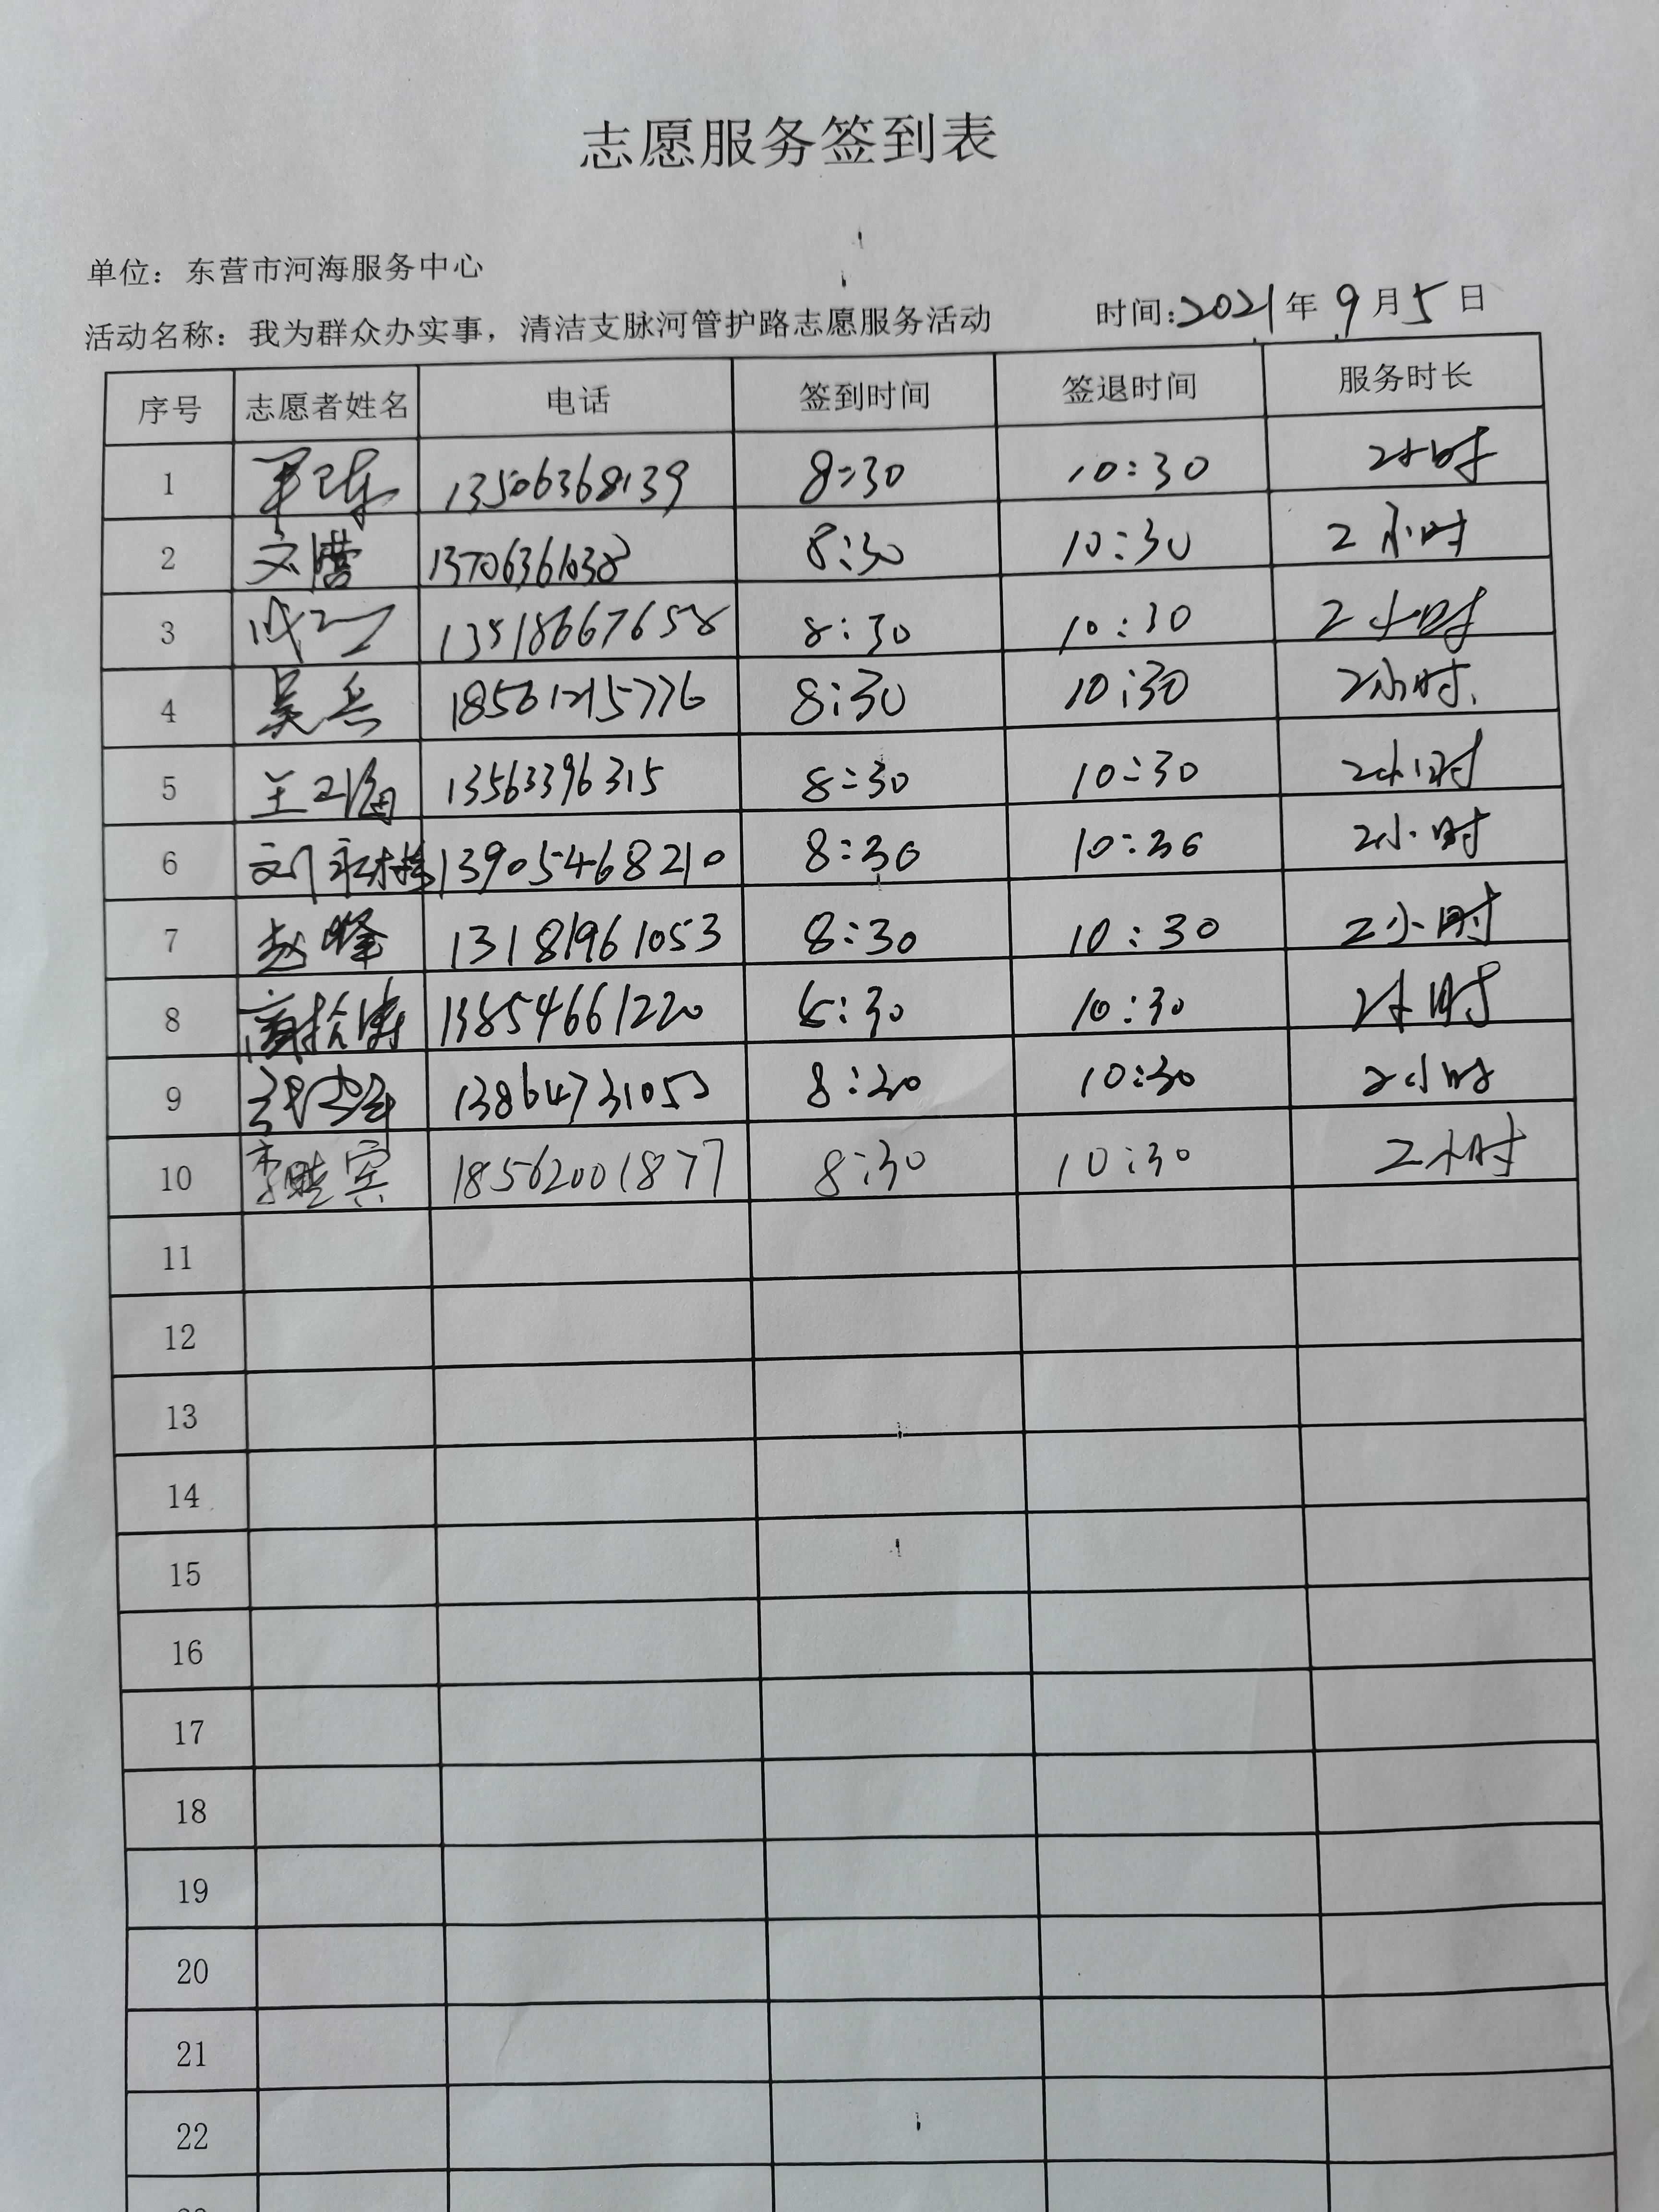 志愿服务签到表
单位：东营市河海服务中心
活动名称：我为群众办实事，清洁支脉河管护路志愿服务活动 时间:2021年9月5日
序号 志愿者姓名 电话 签到时间 签退时间 服务时长
1 13506368139 8:30 10:30 2小时
2 8:30 10:30 2小时
3 8:30 10:30 2小时
4 吴兵 18561215776 8:30 10:30 2小时.
5 王卫海 13563396315 8:30 10:30 2小时
6 刘 13905468210 8:30 10:30 2小时
7 赵峰 13181961053 8:30 10:30 2小时
8 13854661220 8:30 10:30 2小时
9 13864731053 8:30 10:30 2小时
10 李 宾 18562001877 8:30 10:30 2小时
11
12
13
14
15
16
17
18
19
20
21
22